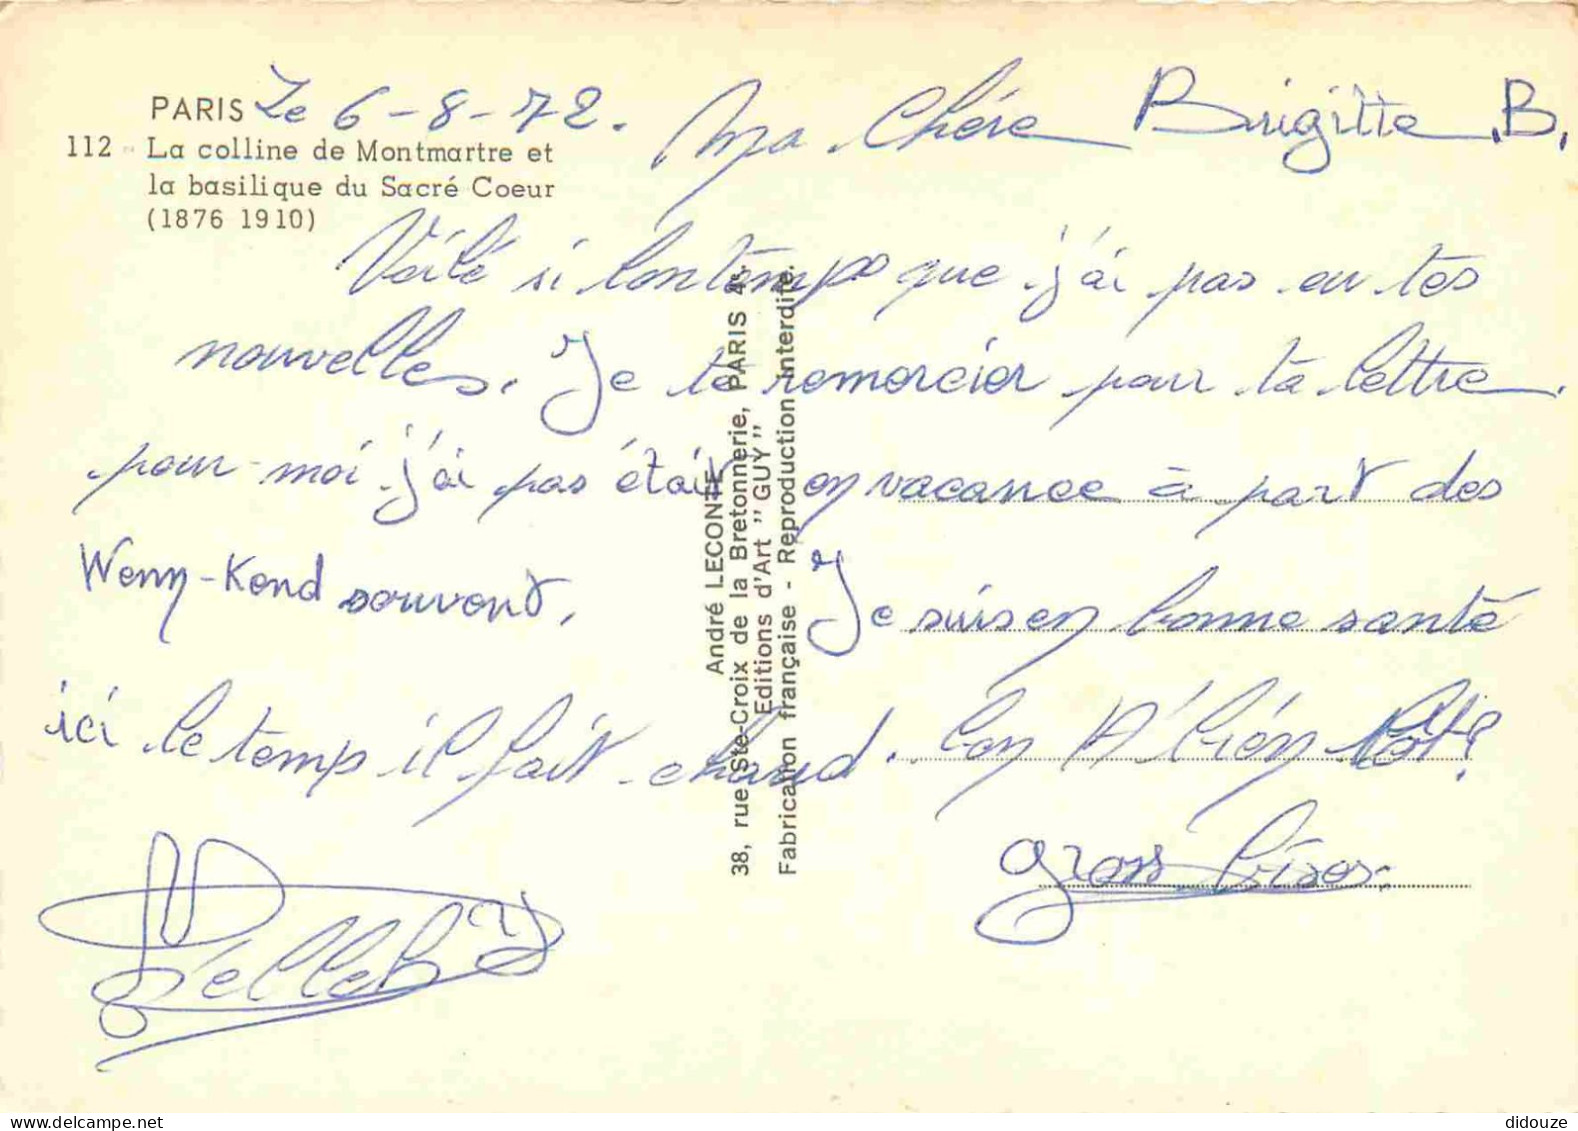 PARIS Le 6-8-72. Ma Chére Brigitte .B.
112 - La colline de Montmartre et
la basilique du Sacré Coeur
(1876 1910)
Voilé si lontemps que j'ai pas eu tes
nouvelles. Je te remercier pour ta lettre.
pour-moi j'ai pas était en vacance à part des
Weny-Kend souvent. Je suis en bonne santé
ici le temp il fait chaud. bon A' bién tôt!
gros bises.
André LECONTE
38, rue Ste-Croix de la Bretonnerie, PARIS 4e.
Editions d'Art " GUY "
Fabrication française - Reproduction interdite.
didouze